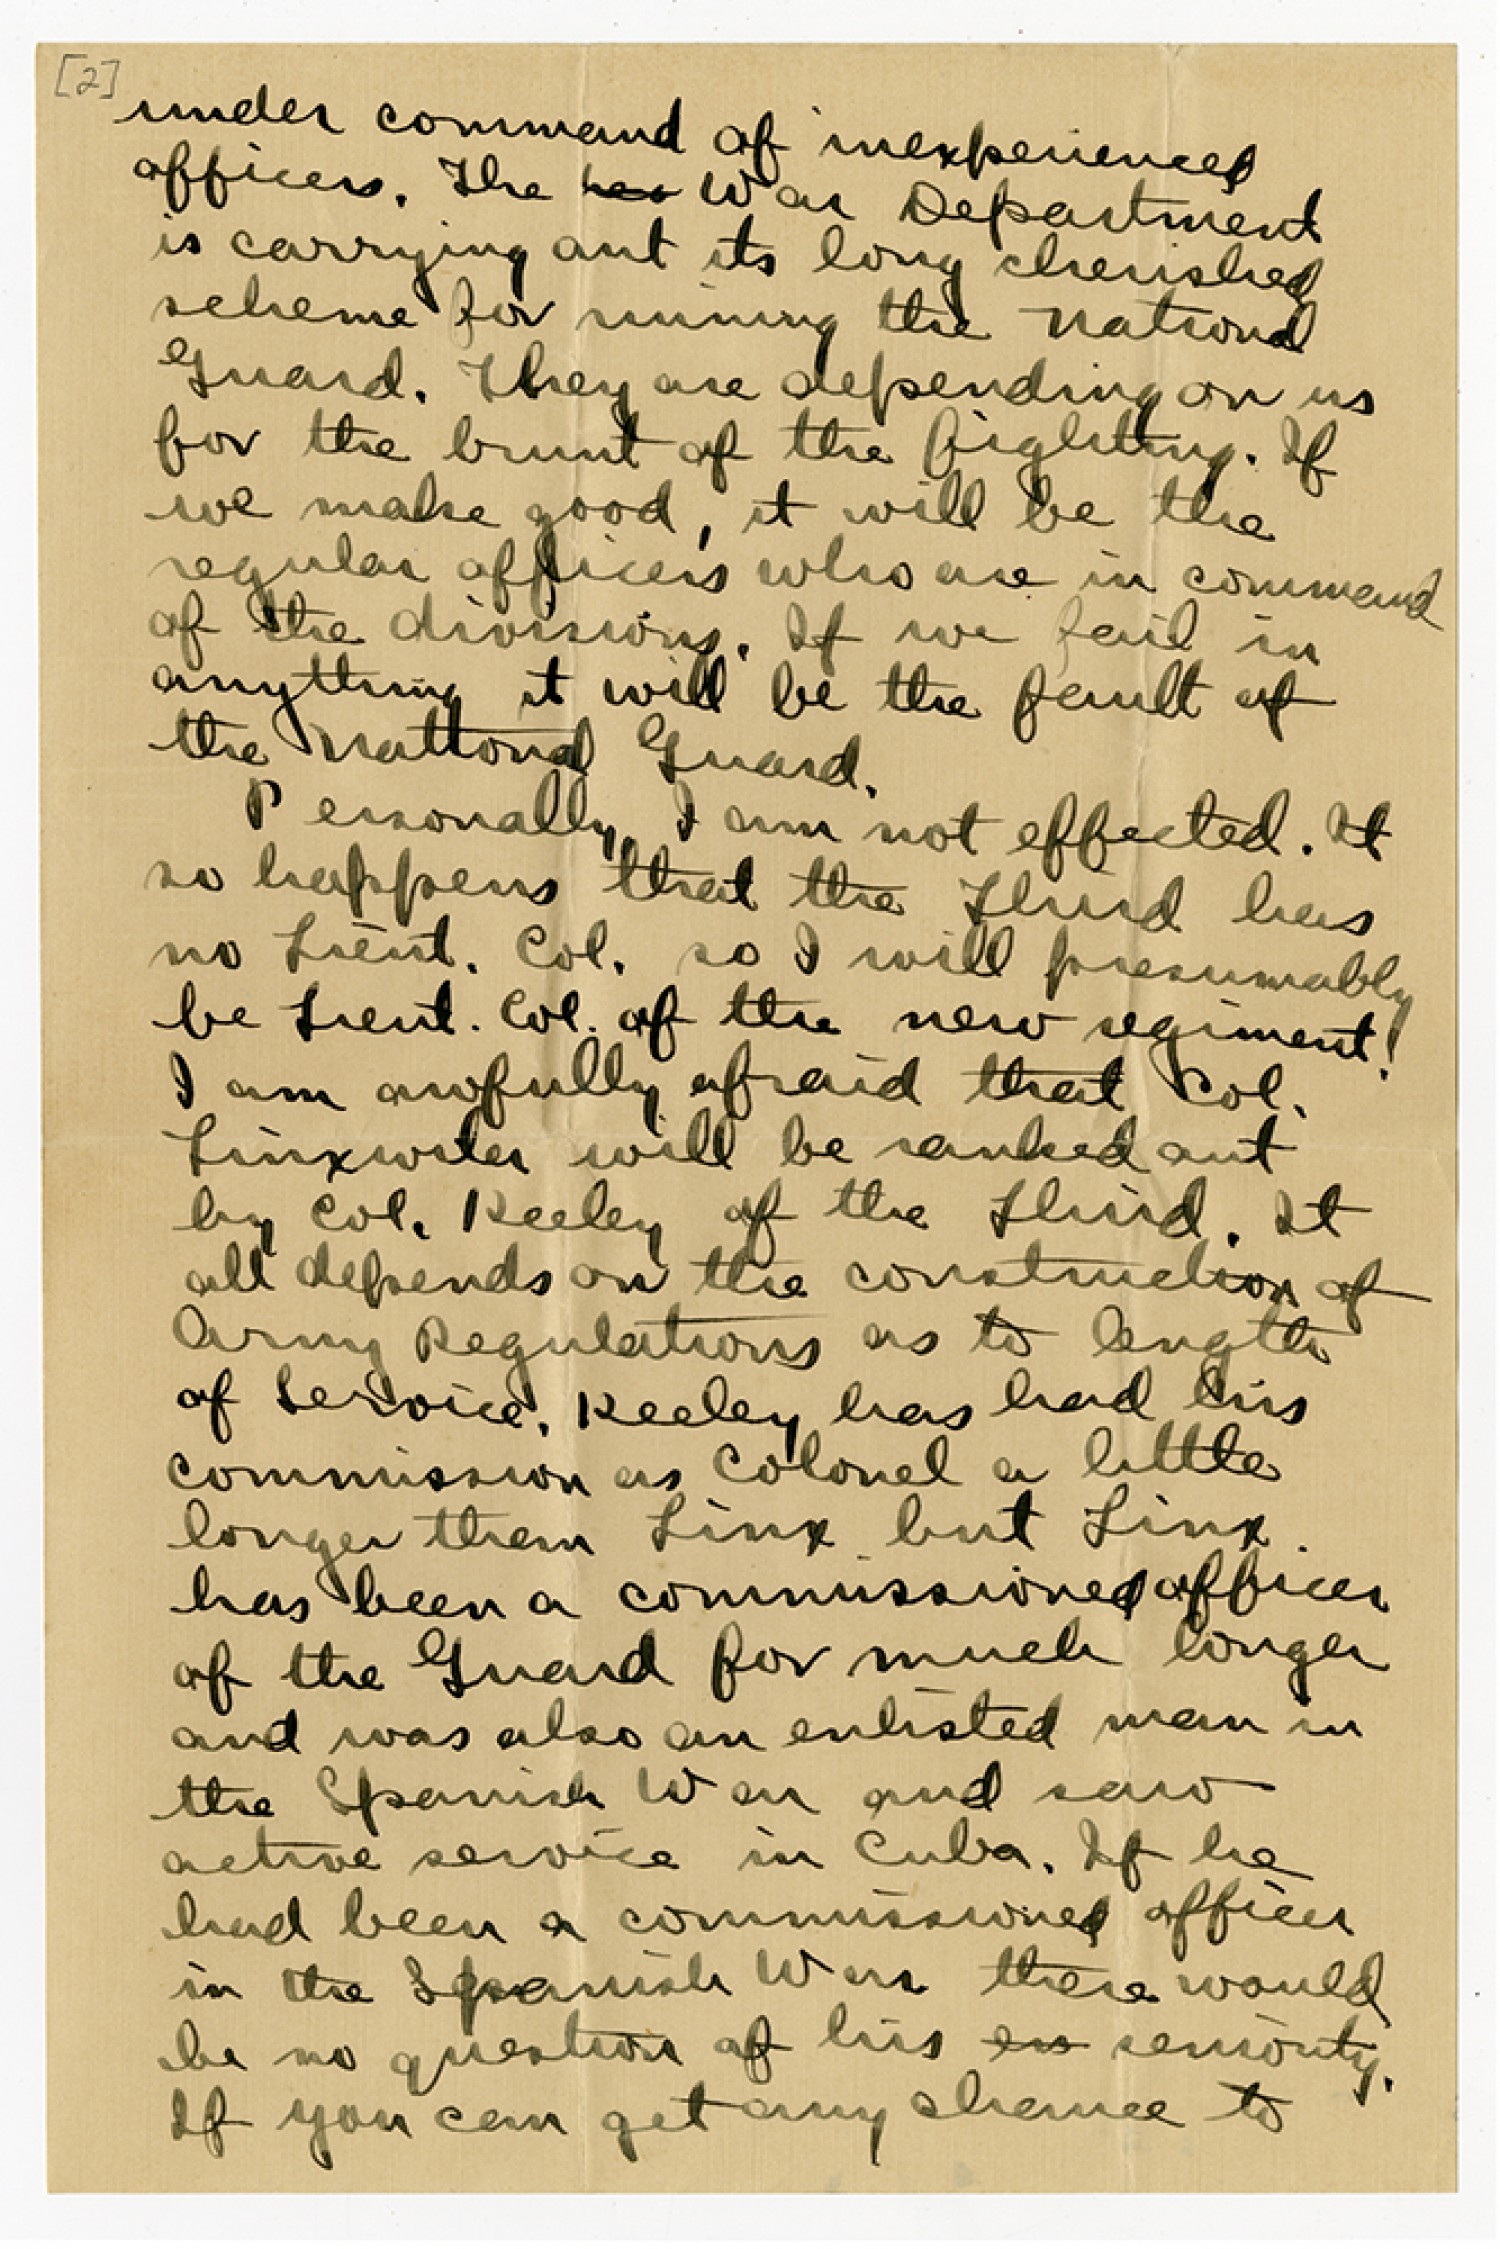 [2]
under command of inexperienced
officers. The War Department
is carrying out its long cherished
scheme for ruining the National
Guard. They are depending on us
for the brunt of the fighting. If
we make good, it will be the
regular officers who are in command
of the divisions. If we fail in
anything it will be the fault of
the National Guard.
Personally, I am not effected. It
so happens that the Third has
no Lieut. Col. so I will presumably
be Lieut. Col. of the new regiment!
I am awfully afraid that Col.
Linxwiler will be ranked out
by Col. Keeley of the Third. It
all depends on the construction of
Army Regulations as to length
of Service. Keeley has had his
commission as Colonel a little
longer than Linx but Linx
has been a commissioned officer
of the Guard for much longer
and was also an enlisted man in
the Spanish War and saw
active service in Cuba. If he
had been a commissioned officer
in the Spanish War there would
be no question of his seniority.
If you can get any chance to